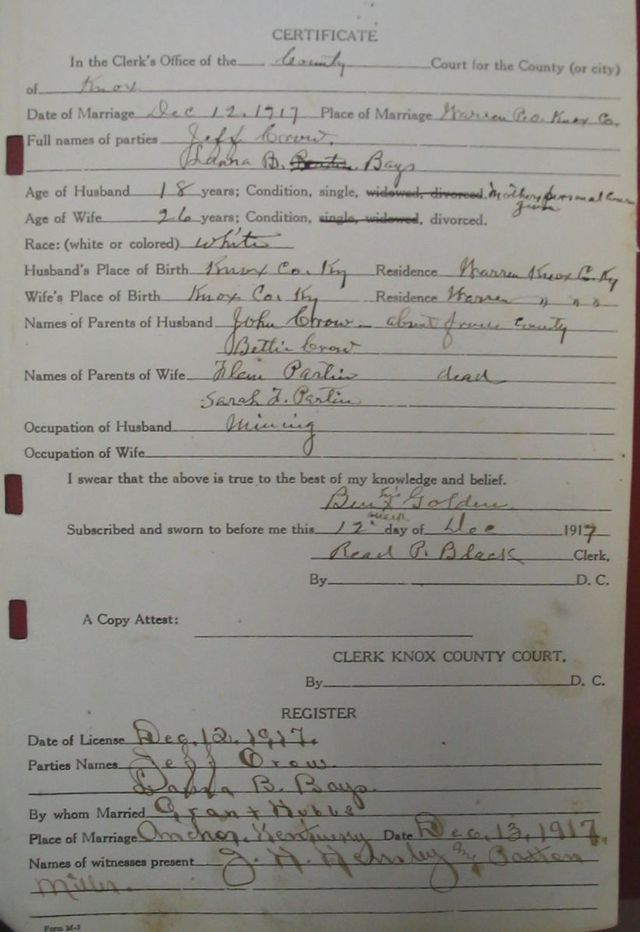 CERTIFICATE
In the Clerk's Office of the County Court for the County (or city)
of Knox
Date of Marriage Dec 12, 1917 Place of Marriage Warren P.O. Knox Co.
Full names of parties Jeff Crow.
B. Bays
Age of Husband 18 years; Condition, single, widowed, divorced. Mothers personal
given
Age of Wife 26 years; Condition, single, widowed, divorced.
Race: (white or colored) white
Husband's Place of Birth Knox Co. Ky Residence Warren Knox C. Ky
Wife's Place of Birth Knox Co. Ky Residence Warren " " "
Names of Parents of Husband John Crow - absent from county
Bettie Crow
Names of Parents of Wife Partin dead
Sarah F. Partin
Occupation of Husband Mining
Occupation of Wife
I swear that the above is true to the best of my knowledge and belief.
his
Ben X Golden
mark
Subscribed and sworn to before me this 12" day of Dec 1917
Read P. Black Clerk,
By D. C.
A Copy Attest:
CLERK KNOX COUNTY COURT.
By D. C.
REGISTER
Date of License Dec. 12, 1917.
Parties Names Jeff Crow.
B. Bays.
By whom Married Grant Hobbs
Place of Marriage Anchor, Kentucky Date Dec. 13, 1917.
Names of witnesses present J. H. Hensley and Patton
Mills.
Form M-3